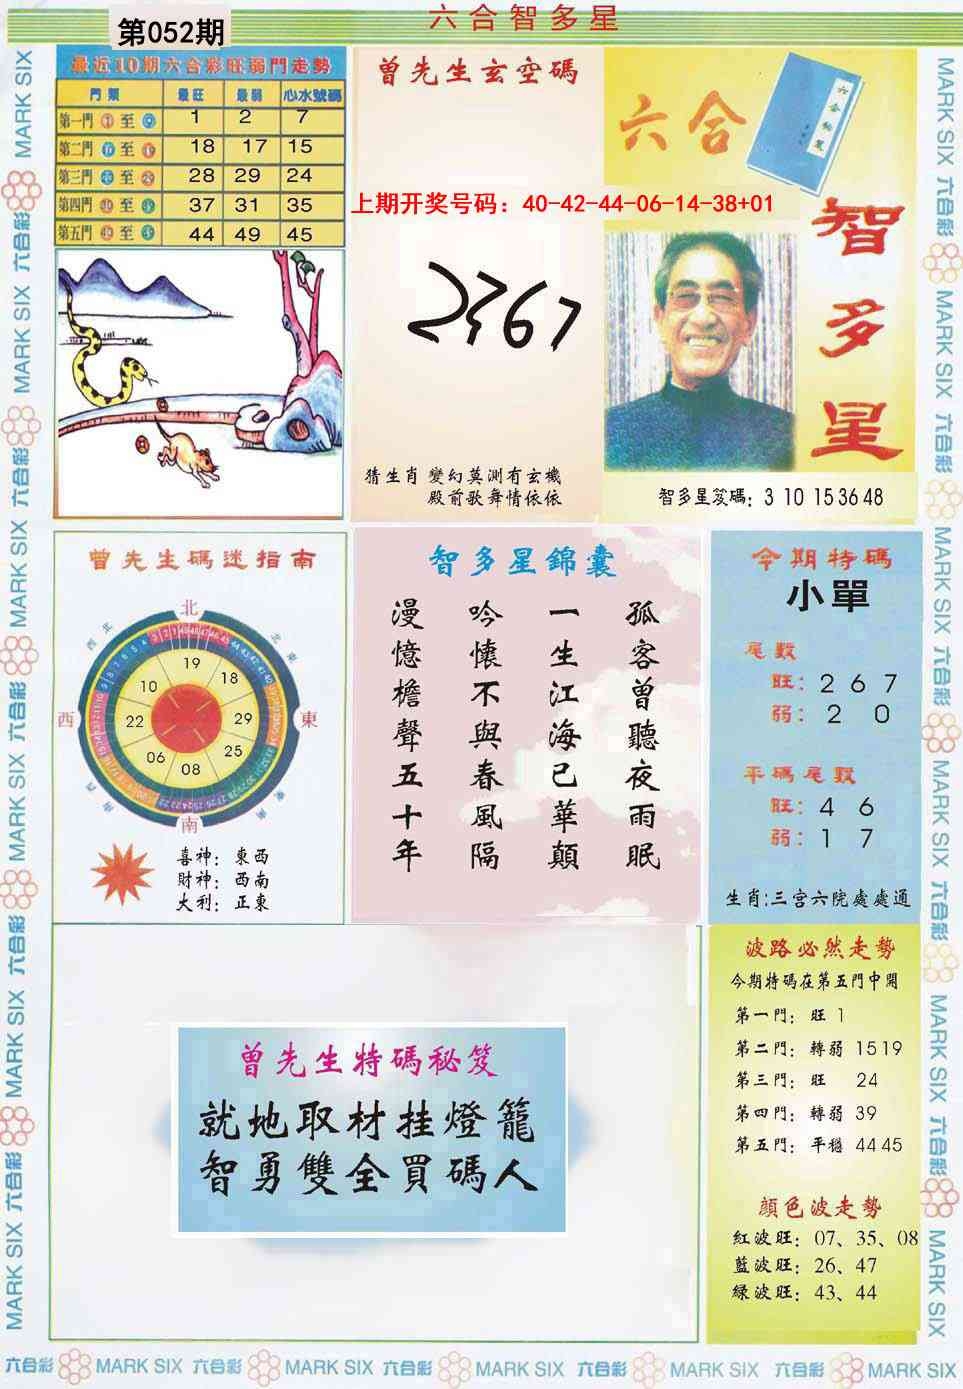 六合智多星
第052期
最近10期六合彩旺弱門走勢
門類 最旺 最弱 心水號碼
第一門 至 1 2 7
第二門 至 18 17 15
第三門 至 28 29 24
第四門 至 37 31 35
第五門 至 44 49 45
曾先生玄空碼
上期开奖号码：40-42-44-06-14-38+01
2367
猜生肖 變幻莫測有玄機
殿前歌舞情依依
六合
智多星
智多星笈碼：3 10 15 36 48
曾先生碼迷指南
北
西北
東北
19
10 18
西 22 29 東
06 25
08
西南
東南
南
喜神：東西
財神：西南
大利：正東
智多星錦囊
孤客曾聽夜雨眠
一生江海已華顛
吟懷不與春風隔
漫憶檐聲五十年
今期特碼
小單
尾數
旺：2 6 7
弱：2 0
平碼尾數
旺：4 6
弱：1 7
生肖：三宫六院處處通
曾先生特碼秘笈
就地取材挂燈籠
智勇雙全買碼人
波路必然走勢
今期特碼在第五門中開
第一門：旺 1
第二門：轉弱 15 19
第三門：旺 24
第四門：轉弱 39
第五門：平穩 44 45
顔色波走勢
紅波旺：07、35、08
藍波旺：26、47
緑波旺：43、44
MARK SIX 六合彩 MARK SIX 六合彩 MARK SIX 六合彩 MARK SIX 六合彩 MARK SIX 六合彩 MARK SIX
MARK SIX 六合彩 MARK SIX 六合彩 MARK SIX 六合彩 MARK SIX 六合彩 MARK SIX 六合彩 MARK SIX
六合彩 MARK SIX 六合彩 MARK SIX 六合彩 MARK SIX 六合彩 MARK SIX 六合彩 MARK SIX